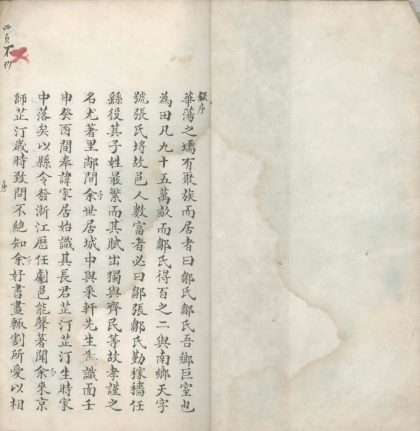 華蕩之壖有聚族而居者曰鄒氏鄒氏吾鄉巨室也
為田凡九十五萬畝而鄒氏得百之二與南鄉天字
號張氏埒故邑人數富者必曰鄒張鄒氏勤稼穡任
縣役其子姓最繁而其賦出獨與齊民等故孝謹之
名尤著里鄰間余世居城中與采軒先生識面壬
申癸酉間奉諱家居始識其長君芷汀芷汀生時家
中落矣以縣令發浙江歷任劇邑能聲著聞余來京
師芷汀歲時致問不絕知余好書畫輒割所愛以相
序
此頁不抄